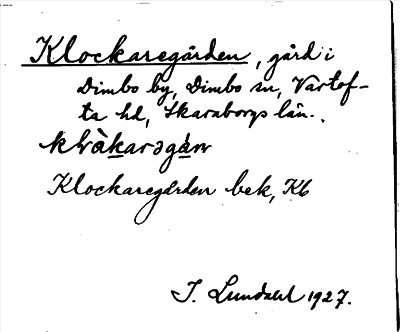 Klockaregården, gård i
Dimbo by, Dimbo sn, Vartof-
ta hd, Skaraborgs län.
Klockaregården bek, Kb
I. Lundahl 1927.